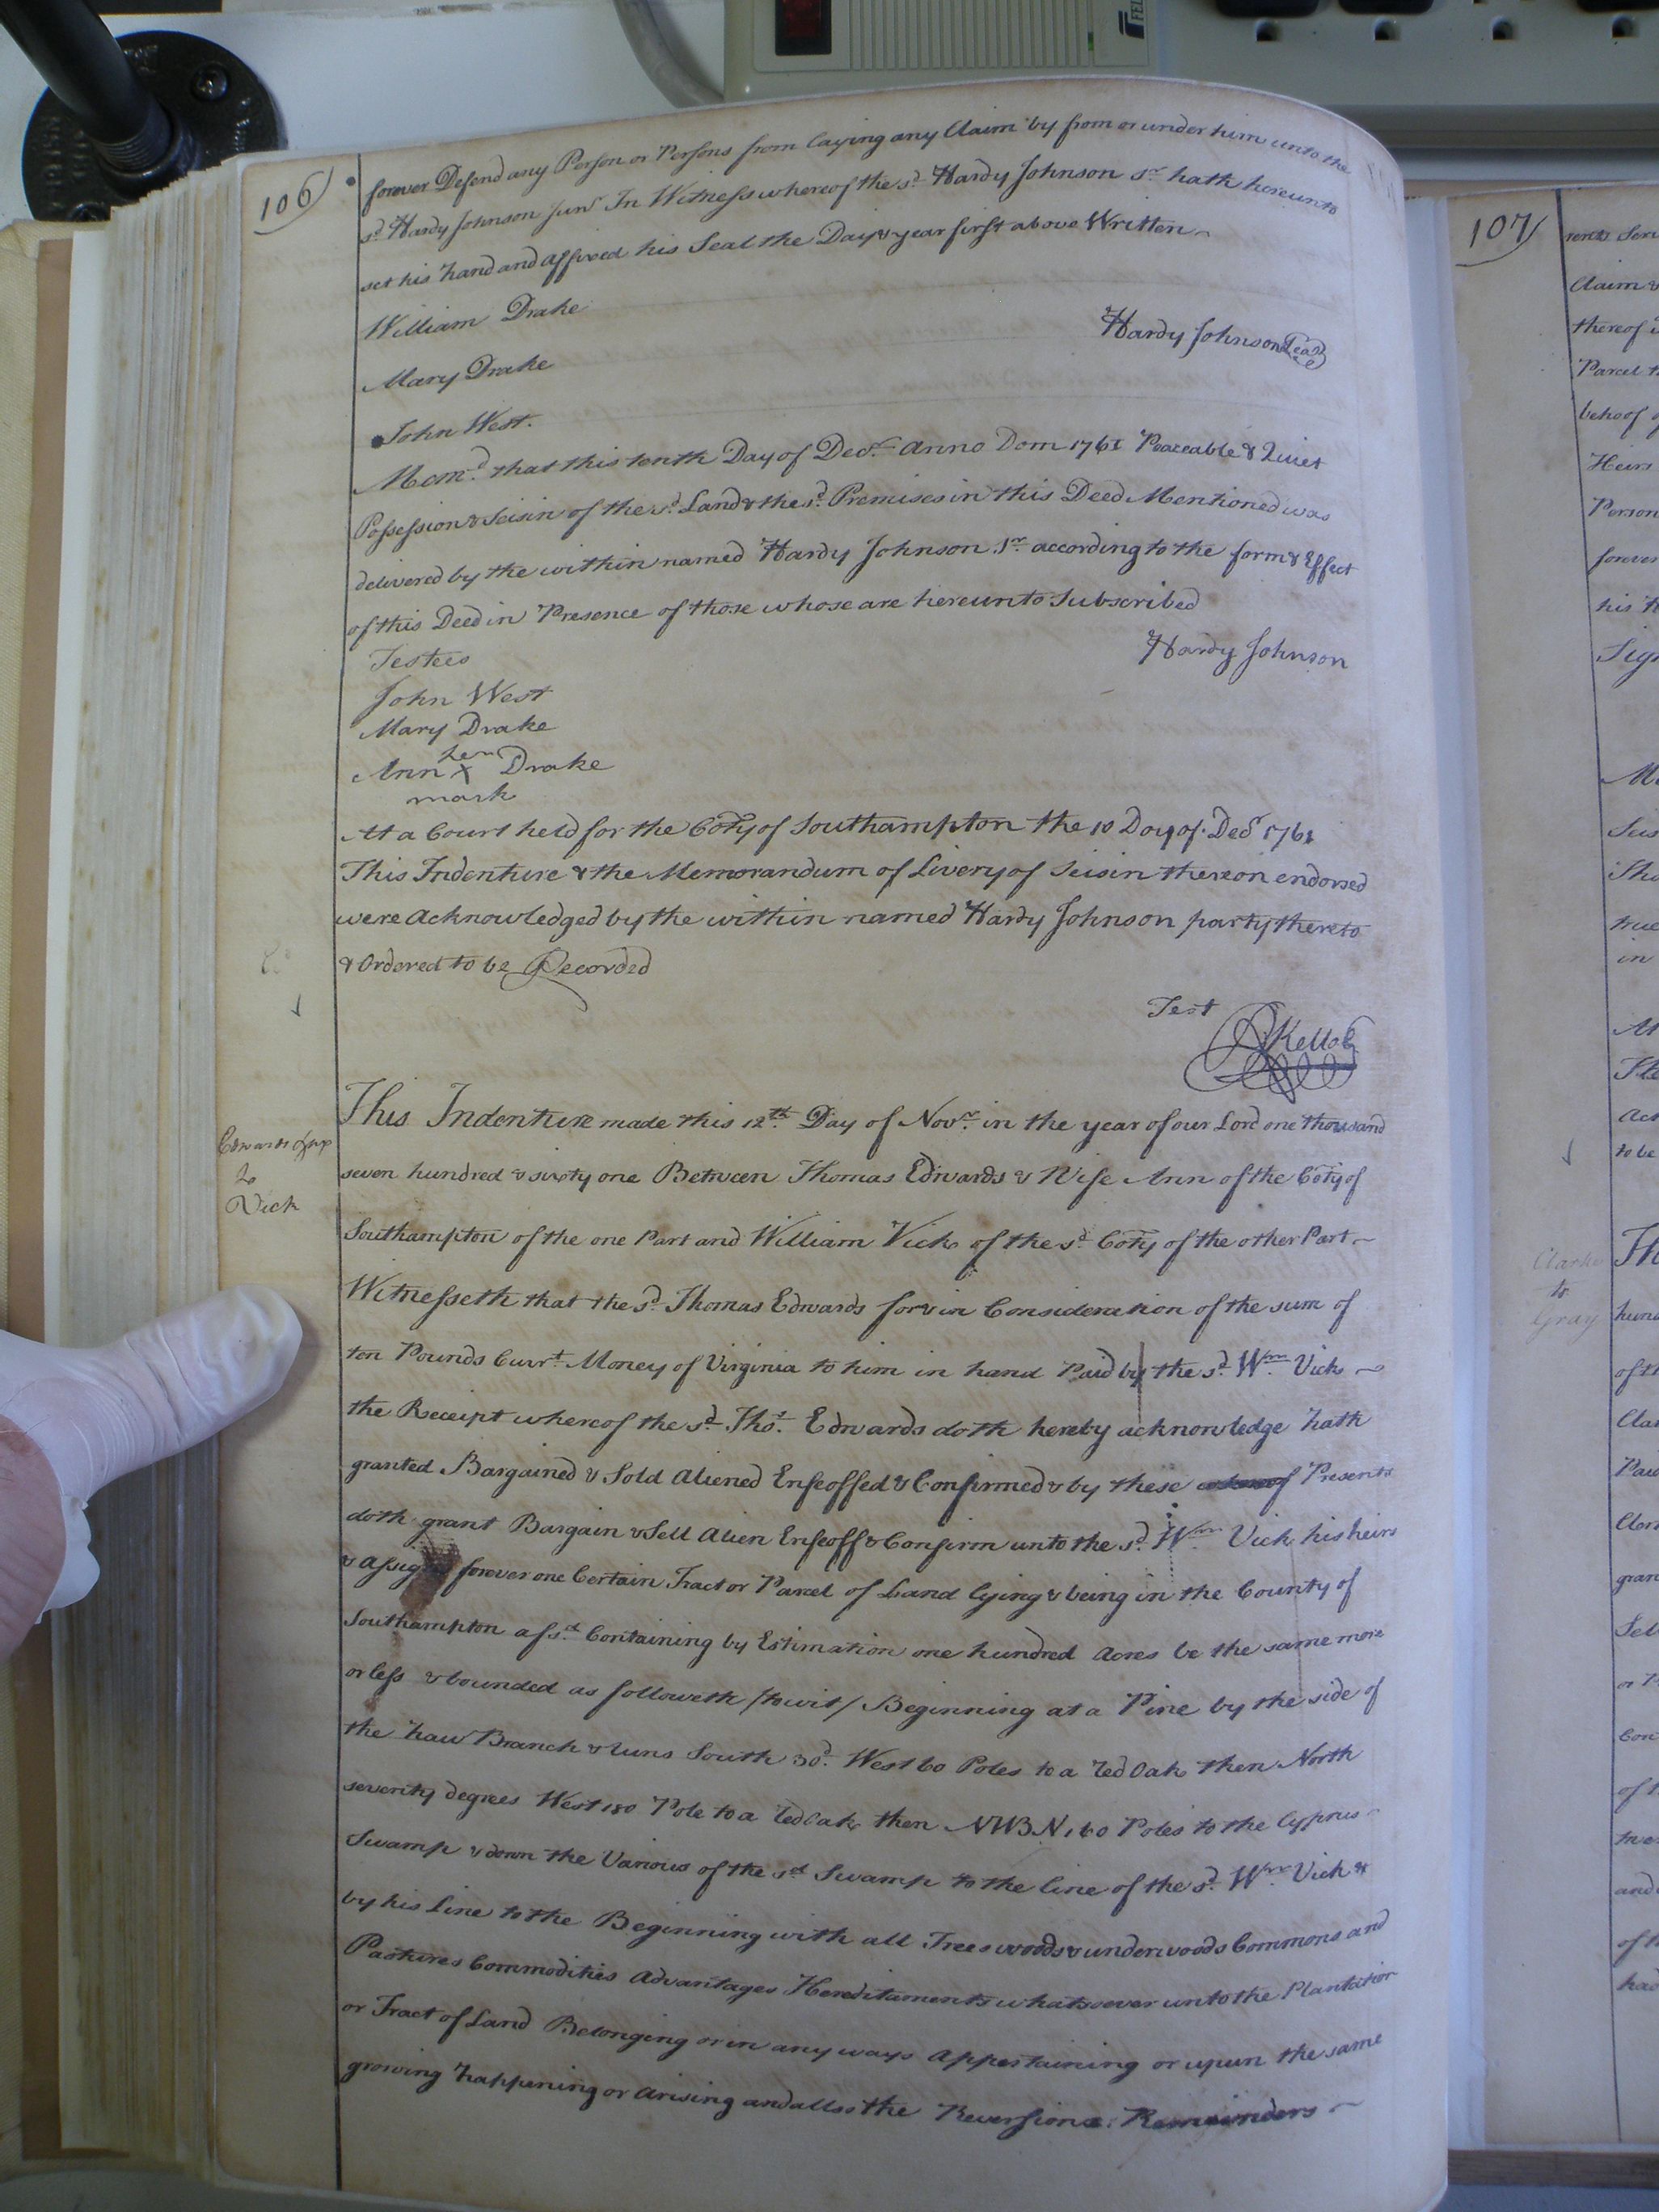 106
forever Defend any Person or Persons from laying any Claim by from or under him unto the
sd Hardy Johnson Junr In Witness whereof the sd Hardy Johnson Sr hath hereunto
set his hand and affixed his Seal the Day & year first above Written
William Drake
Hardy Johnson Seal
Mary Drake
John West.
Memd that this tenth Day of Decr Anno Dom 1761 Peaceable & Quiet
Possession & Seisin of the sd Land & the sd Premises in this Deed Mentioned was
delivered by the within named Hardy Johnson Sr according to the form & Effect
of this Deed in Presence of those whose are hereunto Subscribed
Hardy Johnson
Testees
John West
Mary Drake
her
Ann X Drake
mark
At a Court held for the Coty of Southampton the 10 Day of Decr 1761
This Indenture & the Memorandum of Livery of Seisin thereon endorsed
were acknowledged by the within named Hardy Johnson party thereto
& Ordered to be Recorded
Test
R Kello C
Edwards & up
to
Vick
This Indenture made this 12th Day of Novr in the year of our Lord one thousand
seven hundred & sixty one Between Thomas Edwards & Wife Ann of the Coty of
Southampton of the one Part and William Vick of the sd Coty of the other Part
Witnesseth that the sd Thomas Edwards for & in Consideration of the sum of
ten Pounds Currt Money of Virginia to him in hand Paid by the sd Wm Vick
the Receipt whereof the sd Thos Edwards doth hereby acknowledge hath
granted Bargained & Sold Aliened Enfeoffed & Confirmed & by these Presents
doth grant Bargain & Sell Alien Enfeoff & Confirm unto the sd Wm Vick his heirs
& assigns forever one Certain Tract or Parcel of Land lying & being in the County of
Southampton afsd Containing by Estimation one hundred Acres be the same more
or less & bounded as followeth /towit/ Beginning at a Pine by the side of
the haw Branch & runs South 30d West 60 Poles to a red Oak then North
seventy degrees West 180 Pole to a red Oak then NWBN 160 Poles to the Cyprus
Swamp & down the Various of the sd Swamp to the line of the sd Wm Vick &
by his Line to the Beginning with all Trees woods & underwoods Commons and
Pastures Commodities Advantages Hereditaments whatsoever unto the Plantation
or Tract of Land Belonging or in any ways Appertaining or upun the same
growing happening or Arising and allso the Reversions Remainders
107
Claim &
thereof
Parcel
behoof
Heirs
Person
forever
his
true
in
to be
Clarke
to
Gray
or
of
and
had